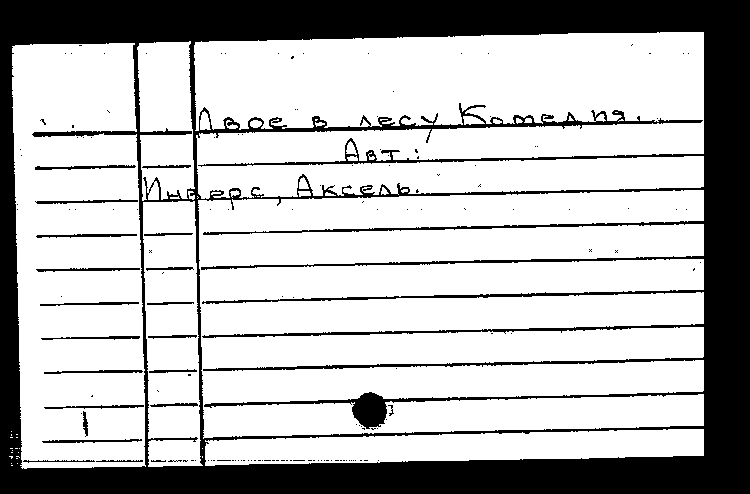 Двое в лесу Комедия.
Авт.:
Инверс, Аксель.